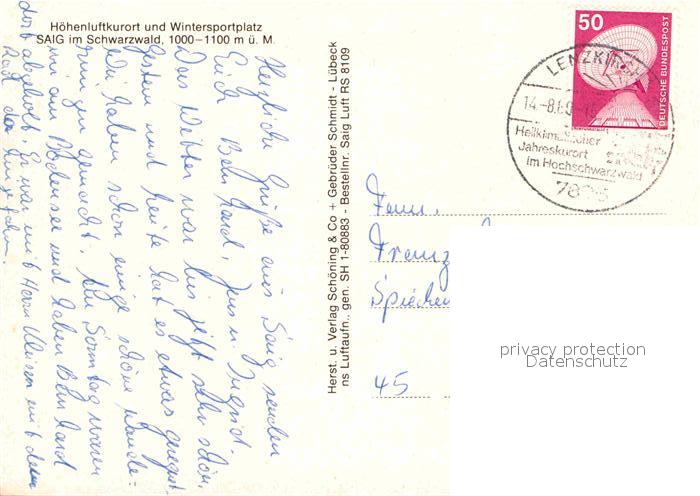 Höhenluftkurort und Wintersportplatz
SAIG im Schwarzwald, 1000–1100 m ü. M.
Herzliche Grüße aus Saig senden
Euch Bernhard, Jens u. Ingrid.
Das Wetter war bis jetzt sehr schön,
gestern und heute hat es etwas geregnet.
Wir haben schon einige schöne Wande-
rungen gemacht. Am Sonntag waren
wir am Bodensee und haben Bernhard
dort abgeholt. Er war mit Herrn mit dem
Rad da hingefahren.
Herst. u. Verlag Schöning & Co + Gebrüder Schmidt - Lübeck
ns Luftaufn., gen. SH 1-80883 - Bestellnr. Saig Luft RS 8109
50
DEUTSCHE BUNDESPOST
LENZKIRCH
14.-8.80
Heilklimatischer
Jahreskurort
im Hochschwarzwald
Fam.
Franz
45
privacy protection
Datenschutz